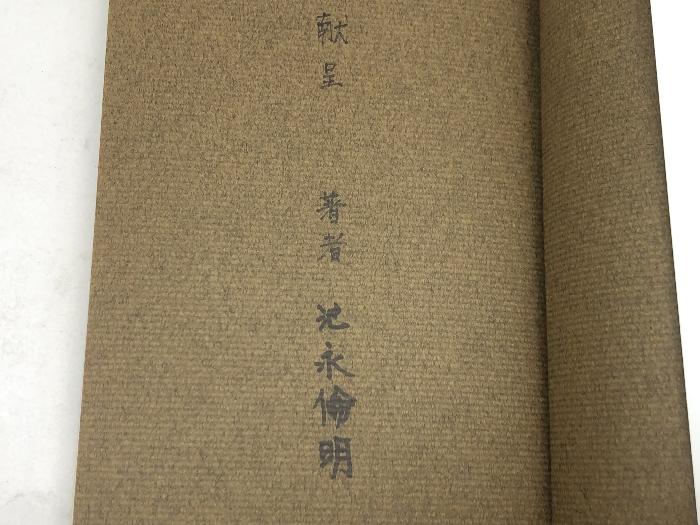 献呈 著者 池永倫明